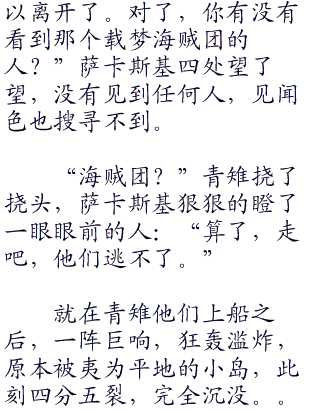 以离开了。对了，你有没有
看到那个载梦海贼团的
人？”萨卡斯基四处望了
望，没有见到任何人，见闻
色也搜寻不到。
“海贼团？”青雉挠了
挠头，萨卡斯基狠狠的瞪了
一眼眼前的人：“算了，走
吧，他们逃不了。”
就在青雉他们上船之
后，一阵巨响，狂轰滥炸，
原本被夷为平地的小岛，此
刻四分五裂，完全沉没。。